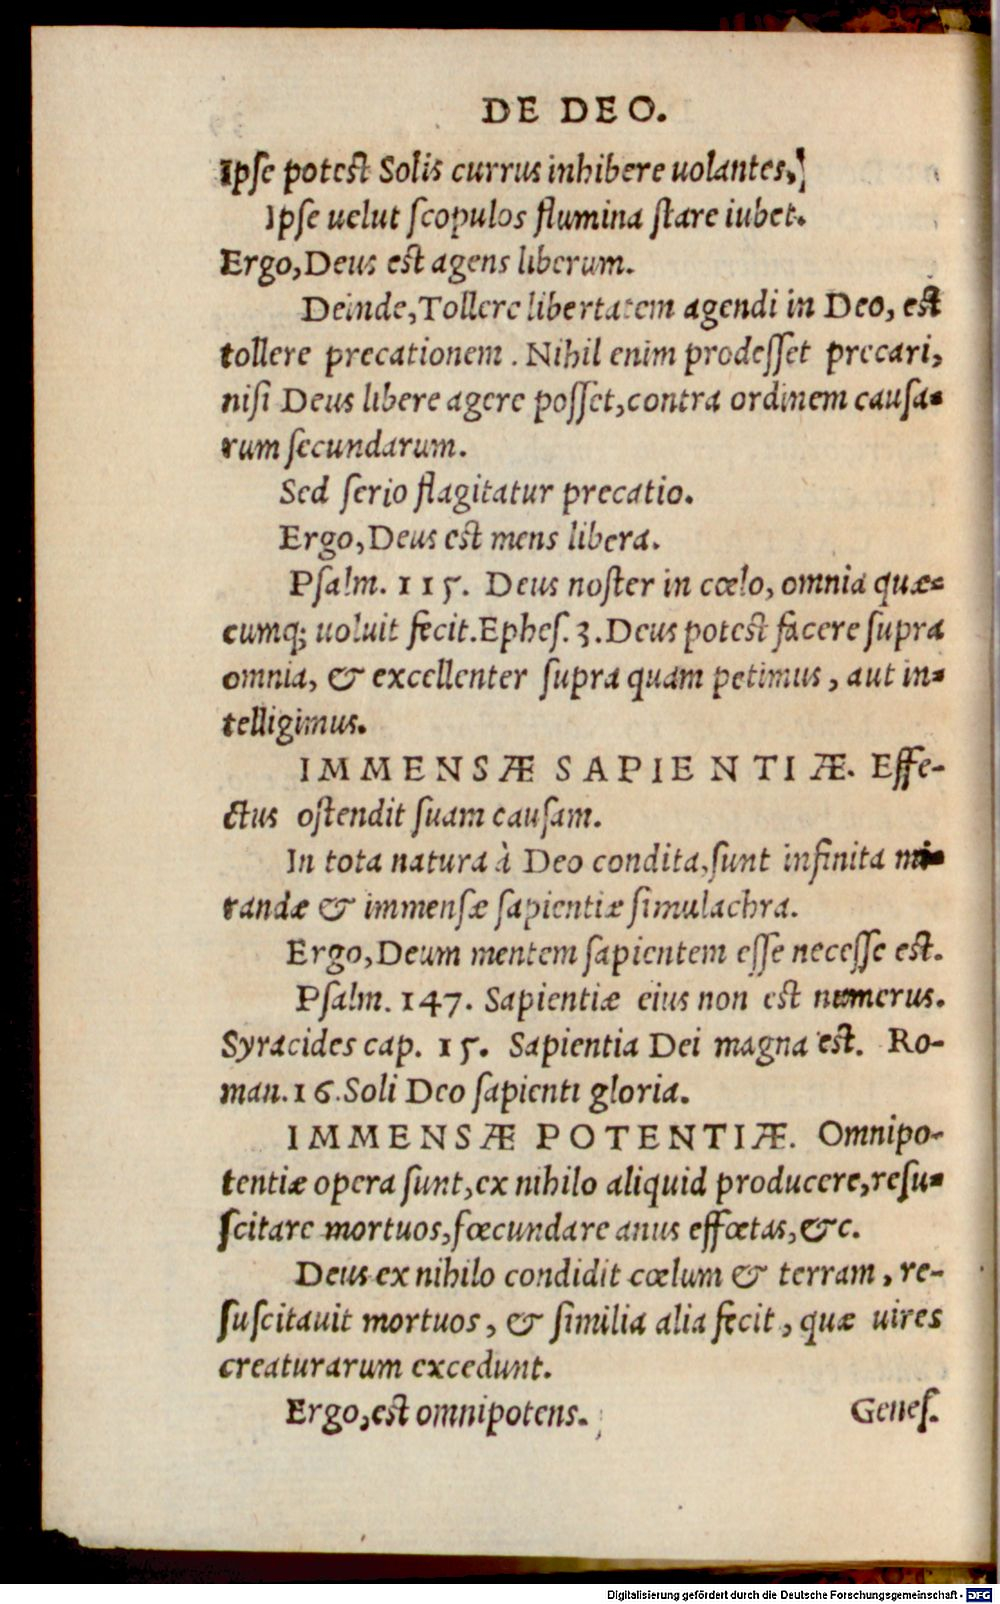 DE DEO.
Ipſe poteſt Solis currus inhibere uolantes,
Ipſe uelut ſcopulos flumina ſtare iubet.
Ergo, Deus eſt agens liberum.
Deinde, Tollere libertatem agendi in Deo, eſt
tollere precationem. Nihil enim prodeſſet precari,
niſi Deus libere agere poſſet, contra ordinem cauſa-
rum ſecundarum.
Sed ſerio flagitatur precatio.
Ergo, Deus eſt mens libera.
Pſalm. 115. Deus noſter in cœlo, omnia quæ-
cumq; uoluit fecit. Epheſ. 3. Deus poteſt facere ſupra
omnia, & excellenter ſupra quam petimus, aut in-
telligimus.
IMMENSÆ SAPIENTIÆ. Effe-
ctus oſtendit ſuam cauſam.
In tota natura à Deo condita, ſunt infinita mi-
randæ & immenſæ ſapientiæ ſimulachra.
Ergo, Deum mentem ſapientem eſſe neceſſe eſt.
Pſalm. 147. Sapientiæ eius non eſt numerus.
Syracides cap. 15. Sapientia Dei magna eſt. Ro-
man. 16. Soli Deo ſapienti gloria.
IMMENSÆ POTENTIÆ. Omnipo-
tentiæ opera ſunt, ex nihilo aliquid producere, reſu-
ſcitare mortuos, fœcundare anus effœtas, &c.
Deus ex nihilo condidit cœlum & terram, re-
ſuſcitauit mortuos, & ſimilia alia fecit, quæ uires
creaturarum excedunt.
Ergo, eſt omnipotens. Geneſ.
Digitalisierung gefördert durch die Deutsche Forschungsgemeinschaft - DFG